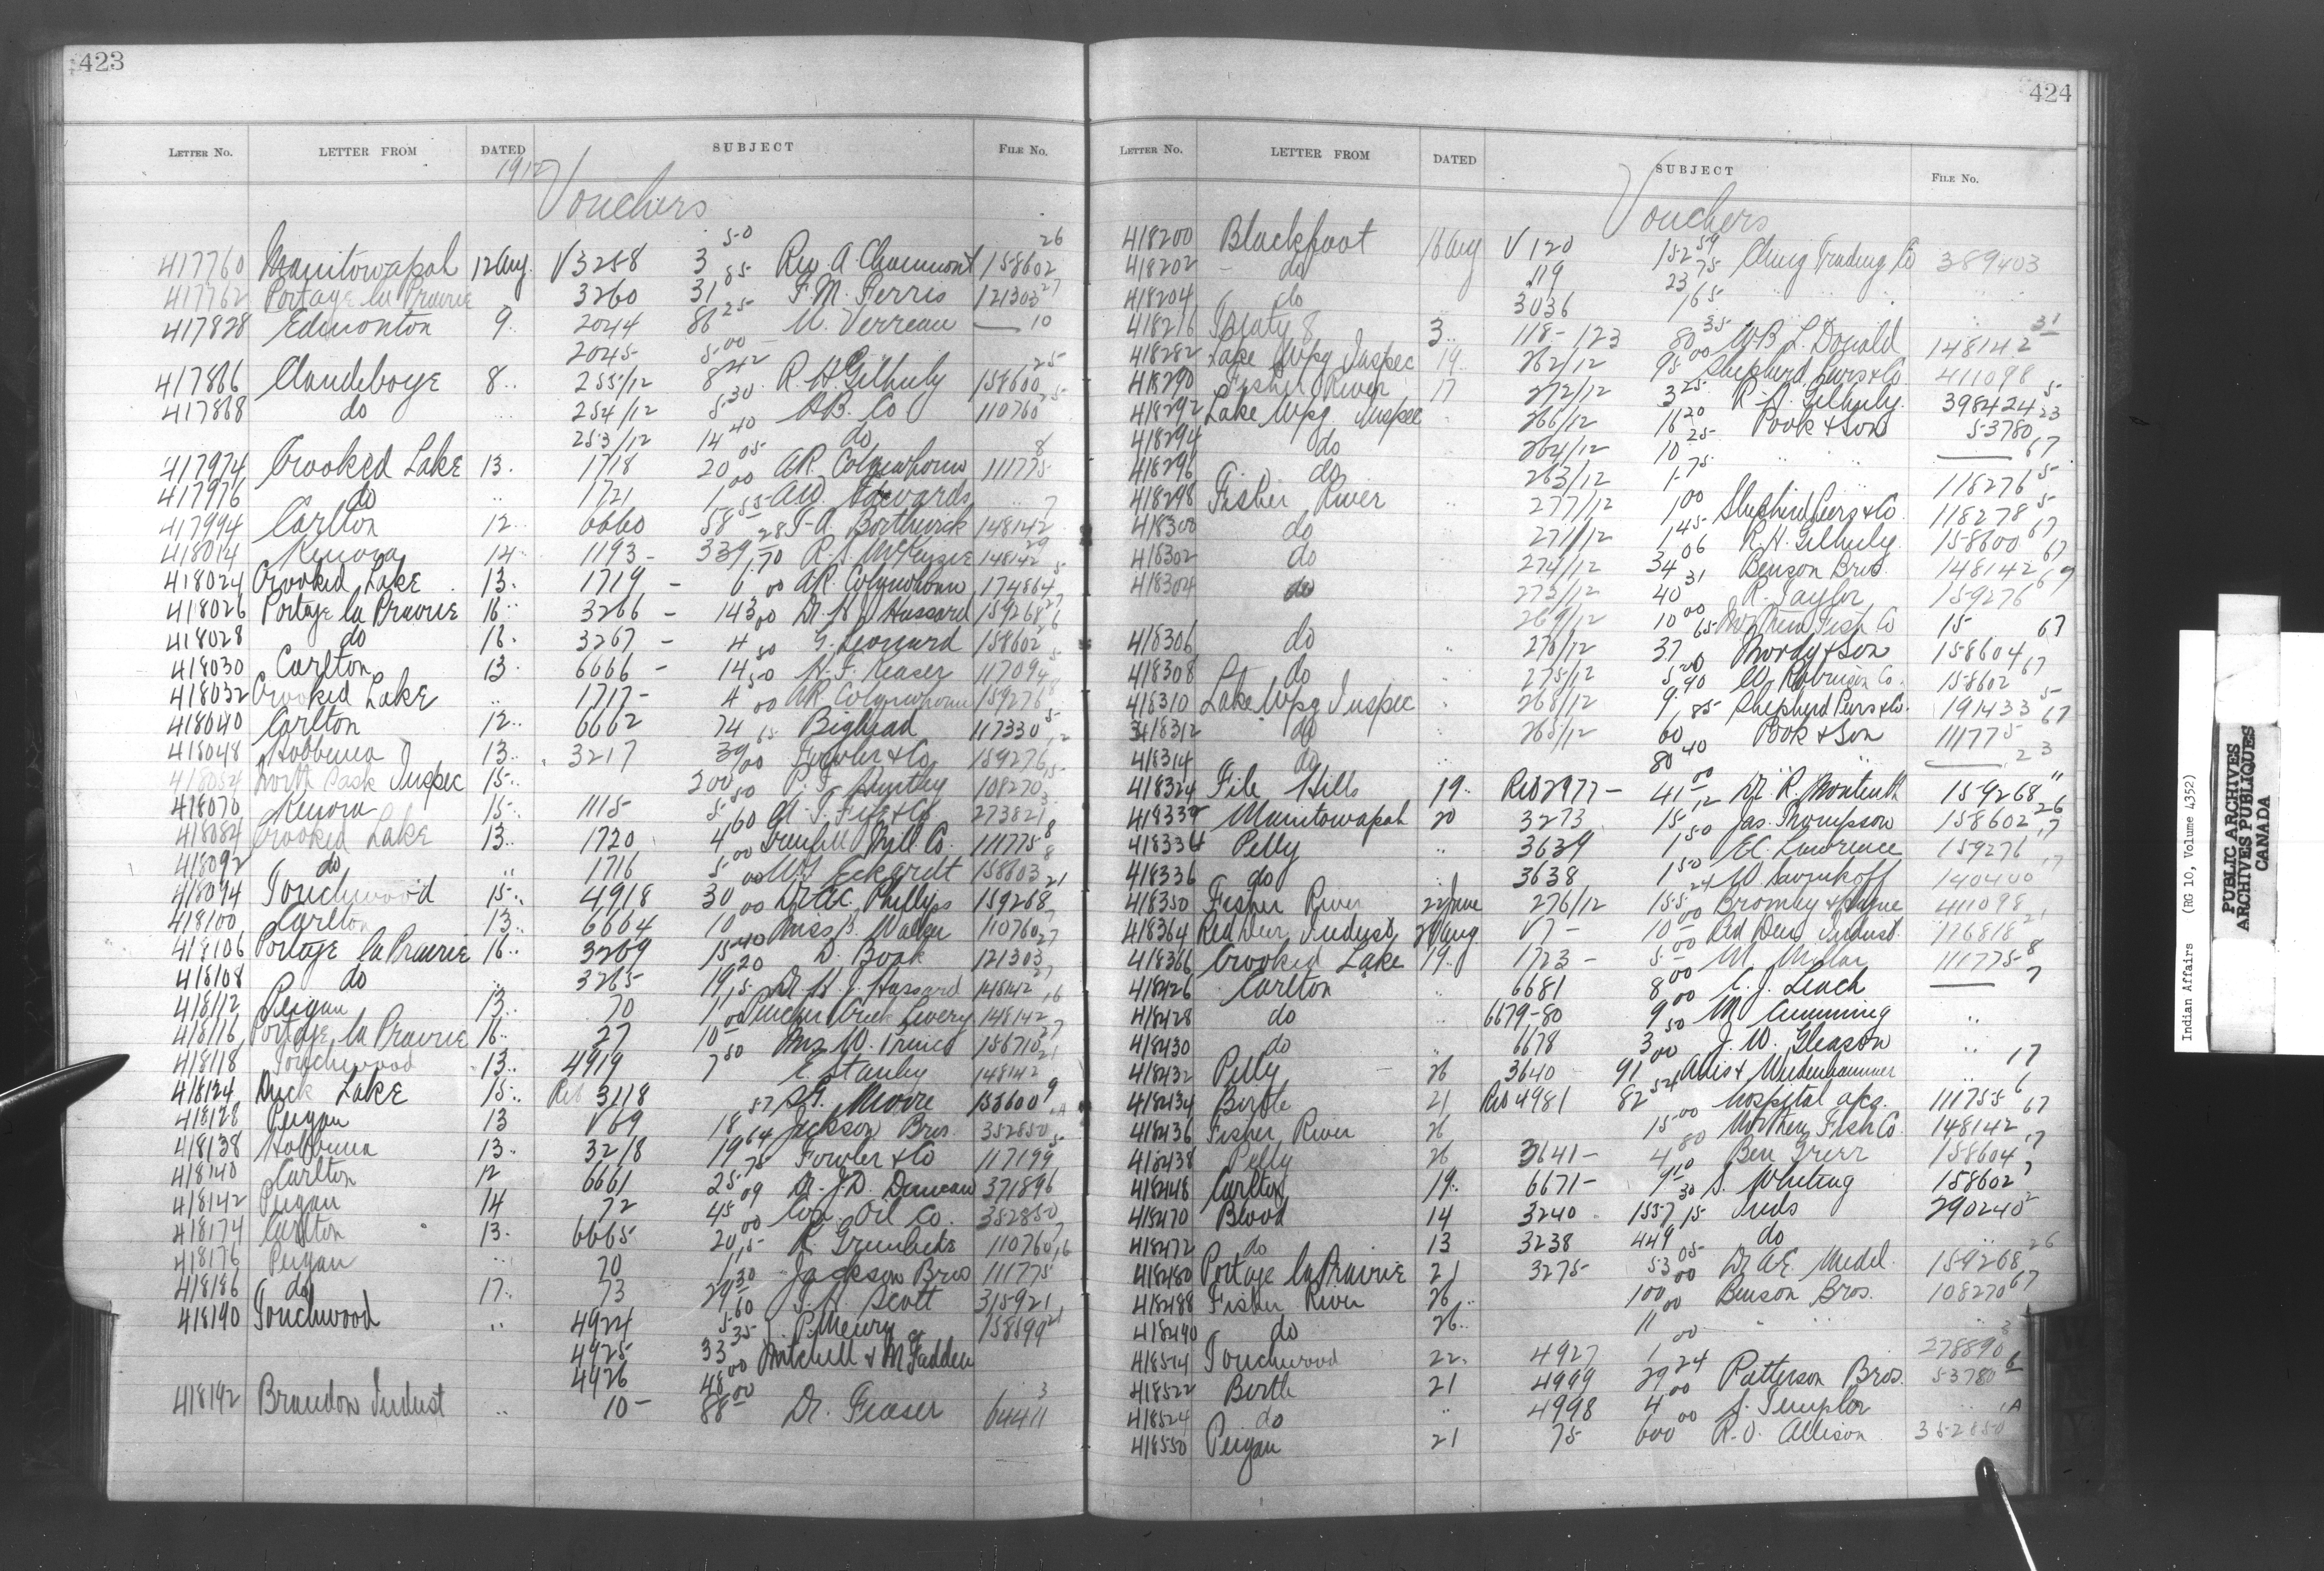 423
LETTER No. LETTER FROM DATED SUBJECT FILE No.
1912 Vouchers
417760 Manitowapah 12 Aug. V 3258 3 50 Rev. A Chaumont 158602 26
417762 Portage la Prairie 3260 31 85 F. M. Ferris 121303 27
417828 Edmonton 9 2044 86 25 U. Verreau — 10
2045 5 00
417866 Clandeboye 8 255/12 8 42 R. H. Gilhuly 158600 25
417868 do 254/12 5 30 H B. Co 110760 25
253/12 14 40 do
417974 Crooked Lake 13. 1718 20 05 A.R. Colquhoun 111775 8
417976 do 1721 1 00 A.W. Edwards
417994 Carlton 12 6660 58 55 148142 7
418014 Kenora 14 1193 - 339 28 R. S. McKenzie 148142 29
418024 Crooked Lake 13. 1719 - 6 70 A.R. Colquhoun 174864
418026 Portage la Prairie 16 3266 - 143 00 Dr. H J Hassard 159268 27
418028 do 16. 3267 - 4 00 G. Leonard 158602 26
418030 Carlton 13 6666 - 14 50 117094
418032 Crooked Lake 1717 - 4 50 A.R. Colquhoun 159276
418040 Carlton 12 6662 74 00 Bighead 117330
418048 Hobbema 13 3217 39 65 Fowler & Co 159276 12
418054 North Sask Inspec 15 200 00 P. J. Huntley 108270
418070 Kenora 15 1115 5 50 273821
418084 Crooked Lake 13 1720 4 60 Grenfell Mill Co. 111775 8
418092 do 1716 5 00 W. Eckardt 158603 8
418094 Touchwood 15 4918 30 00 Dr. A.C. Phillips 159268 21
418100 Carlton 13 6664 10 00 Miss B. Walker 110760 7
418106 Portage la Prairie 16 3269 15 40 D. Book 121303 27
418108 do 3265 19 20 Dr. H. J. Hassard 148142 27
418112 Peigan 13 70 1 15 Pincher Creek Livery 148142 16
418116 Portage la Prairie 16 27 10 00 Mrs W. 156710 27
418118 Touchwood 13 4919 7 50 C. Stanley 148142 21
418124 Duck Lake 15 Ret 3118 Moore 158600 9
418128 Peigan 13 V 69 18 57 Jackson Bros. 352850
418138 Hobbema 13 3218 19 64 Fowler & Co 117199
418140 Carlton 12 6661 25 75 Dr. J.D. Duncan 371896
418142 Peigan 14 72 45 09 Con. Oil Co. 352850
418174 Carlton 13 6665 20 00 R. 110760 7
418176 Peigan 70 1 15 Jackson Bros 111775 16
418186 do 17 73 29 30 T. H. Scott 315921
418190 Touchwood 4924 5 60 J. P. Meury 158599 21
4925 33 35 Mitchell & McFadden
4926 48 00
418192 Brandon Indust 10 - 88 00 Dr. Fraser 64411 3
424
LETTER No. LETTER FROM DATED SUBJECT FILE No.
Vouchers
418200 Blackfoot 16 Aug V 120 152 59 Cluny Trading Co 389403
418202 do 119 23 75
418204 do 3036 1 65
418216 Treaty 8 3 118-123 80 35 W.B. L. Donald 148142 31
418282 Lake Wpg Inspec 19 262/12 95 00 Shepherd Purs & Co. 411098
418290 Fisher River 17 272/12 3 25 R. H. Gilhuly 398424 5
418292 Lake Wpg Inspec 266/12 16 20 Pook & Son 53780 23
418294 do 264/12 10 25 — 67
418296 do 263/12 1 75
418298 Fisher River 277/12 1 00 Shepherd Purs & Co 118276 5
418300 do 271/12 1 45 R. H. Gilhuly 118278 5
418302 do 274/12 34 06 Benson Bros. 158600 67
418304 do 273/12 40 31 R. Taylor 148142 67
269/12 10 00 Northern Fish Co 159276 67
418306 do 270/12 37 65 Mordy & Son 158604 67
418308 do 275/12 5 00 W. Robinson Co. 158602 67
418310 Lake Wpg Inspec 268/12 9 90 Shepherd Purs & Co. 191433 5
418312 do 265/12 60 85 Pook & Son 111775 67
418314 do 80 40 — 23
418324 File Hills 19 Ret 2977 - 41 00 Dr. R. Monteith 159268 11
418332 Manitowapah 20 3273 15 12 Jas. Thompson 158602 26
418334 Pelly 3639 1 50 E.C. Lawrence 159276 17
418336 do 3638 1 50 W. Savinkoff 140400 17
418350 Fisher River 22 June 276/12 155 24 Bromley & Hague 411098
418364 Red Deer Indust. 20 Aug V 7 - 10 00 Red Deer Indust. 116818 21
418366 Crooked Lake 19 1723 - 5 00 M. Millar 111775 8
418426 Carlton 6681 8 00 C. J. Leach — 7
418428 do 6679-80 9 00 M Cumming
418430 do 6678 3 50 J. W. Gleason
418432 Pelly 26 3640 91 00 & Weidenhammer 17
418434 Birtle 21 Ret 4981 82 54 hospital a/c. 111755 6
418436 Fisher River 26 15 00 Northern Fish Co. 148142 67
418438 Pelly 26 3641 - 4 80 Ben Greer 158604 17
418448 Carlton 19 6671 - 9 10 S. Whiting 158602 7
418470 Blood 14 3240 1557 30 Inds 290240 2
418472 do 13 3238 449 15 do
418480 Portage la Prairie 21 3275 53 05 Dr A.E. Medd. 159268 26
418488 Fisher River 26 100 00 Benson Bros. 108270 67
418490 do 26 11 00
418514 Touchwood 22. 4927 1 00 278890
418522 Birtle 21 4999 29 24 Patterson Bros. 53780 6
418524 do 4998 4 00 S. Templar
418550 Peigan 21 75 600 00 R. O. Allison 352850
Indian Affairs (RG 10, Volume 4352)
PUBLIC ARCHIVES
ARCHIVES PUBLIQUES
CANADA